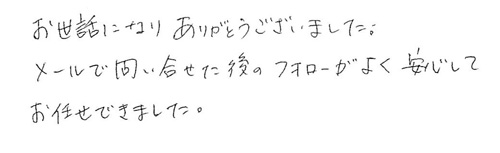 お世話になり ありがとうございました。
メールで問い合せた後のフォローがよく 安心して
お任せできました。